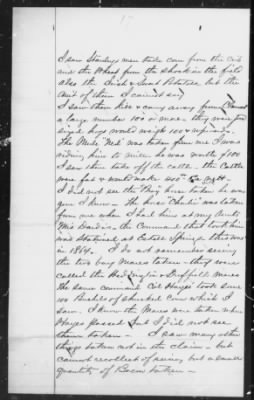 17
I saw Stanleys men take corn from the Crib
and the Wheat from the shock in the field
also the Irish & Sweet Potatoes, but the
amt of them I cannot say
I saw them kill & carry away from
a large number 100 or more they were for
hogs would weigh 100 & upward.
The Mule "Ned" was taken from me I was
riding him to mill, he was worth $100
I saw them take off the cattle the Cattle
were fat & would make 400 lbs
I did not see the Bay horse taken he was
gone I know. The horse Charlie was taken
from me when I had him at my Aunt
Mrs the command that took him
was stationed at Estill Springs, this was
in 1864. I do not remember seeing
the two bay Mares taken - they were
called the & Duffield Mares
The same command Col Hayes took some
100 Bushels of shucked Corn which I
saw. I know the Mares were taken when
Hayes passed but I did not see
them taken. I saw many other
things taken not in the claim - but
cannot recollect of seeing but a small
quantity of Bacon taken -